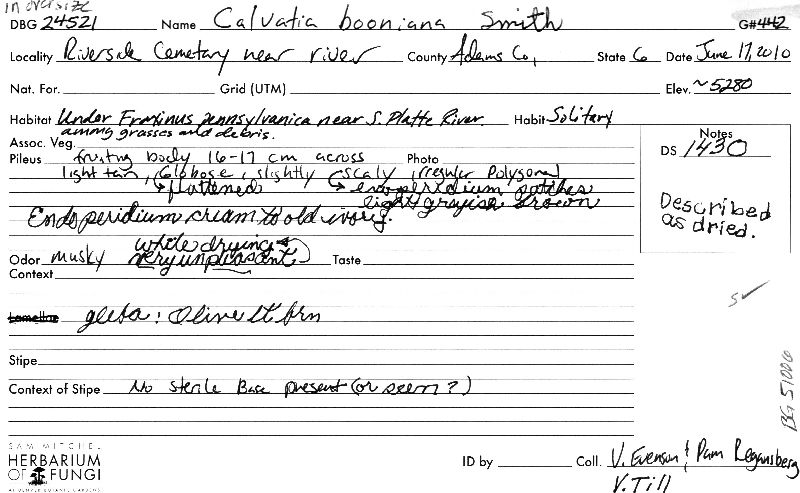 in oversize
DBG 24521 Name Calvatia booniana Smith G# 442
Locality Riverside Cemetary near river County Adams Co, State Co Date June 17, 2010
Nat. For. Grid (UTM) Elev. ~5280
Habitat Under Fraxinus pennsylvanica near S. Platte River. Habit Solitary
among grasses and debris.
Assoc. Veg.
Notes
DS 1430
Pileus fruting body 16-17 cm across Photo
light tan, Globose, slightly scaly irregular Polygonal
flattened exoperidium patches
light grayish brown
Described
as dried.
Endoperidium cream to old ivory.
while drying &
Odor musky very unpleasant) Taste
Context
5 ✓
Lamellae gleba: Olive lt brn
Stipe
Context of Stipe No sterile Base present (or seem?)
BG 51006
SAM MITCHEL
HERBARIUM
OF FUNGI
AT DENVER BOTANIC GARDENS
ID by Coll. V. Evenson & Pam Regensberg
V. Till